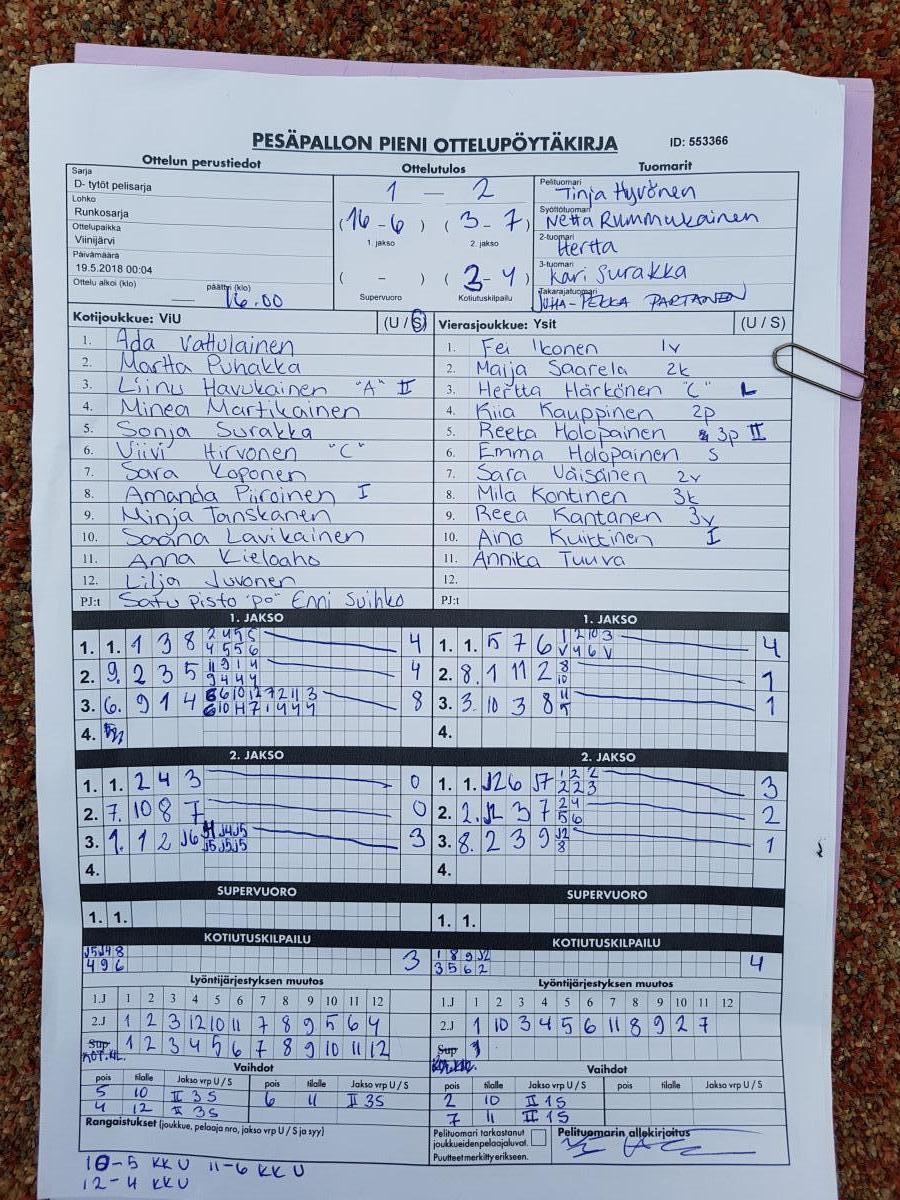 PESÄPALLON PIENI OTTELUPÖYTÄKIRJA ID: 553366
Ottelun perustiedot Ottelutulos Tuomarit
Sarja
D- tytöt pelisarja
Lohko
Runkosarja
Ottelupaikka
Viinijärvi
Päivämäärä
19.5.2018 00:04
Ottelu alkoi (klo) päättyi (klo)
16.00
1 - 2
(16-6) (3-7)
1. jakso 2. jakso
( - ) (3-4)
Supervuoro Kotiutuskilpailu
Pelituomari Tinja Hyvönen
Syöttötuomari Netta Rummukainen
2-tuomari Hertta
3-tuomari Kari Surakka
Takarajatuomari JUHA-PEKKA PARTANEN
Kotijoukkue: ViU (U / S)
1. Ada Vattulainen
2. Martta Puhakka
3. Liinu Havukainen "A" II
4. Minea Martikainen
5. Sonja Surakka
6. Viivi Hirvonen "C"
7. Sara Koponen
8. Amanda Piiroinen I
9. Minja Tanskanen
10. Saana Lavikainen
11. Anna Kieloaho
12. Lilja Juvonen
PJ:t Satu Pisto "po" Enni Suihko
Vierasjoukkue: Ysit (U / S)
1. Fei Ikonen 1v
2. Maija Saarela 2k
3. Hertta Härkönen "C" L
4. Kiia Kauppinen 2p
5. Reeta Holopainen 3p II
6. Emma Holopainen S
7. Sara Väisänen 2v
8. Mila Kontinen 3k
9. Reea Kantanen 3v
10. Aino Kuittinen I
11. Annika Tuuva
12.
PJ:t
1. JAKSO
1. 1. 1 3 8 2 4 5 6 4
4 5 5 6
2. 9. 2 3 5 11 9 1 4 4
9 4 4 4
3. 6. 9 1 4 6 6 10 12 7 2 11 3 8
4.
2. JAKSO
1. 1. 2 4 3 0
2. 7. 10 8 7 0
3. 1. 1 2 J6 J4 J5 3
J5 J5 J5
4.
SUPERVUORO
1. 1.
KOTIUTUSKILPAILU
J5 J4 8 3
4 9 6
1. JAKSO
1. 1. 5 7 6 1 2 10 3 4
V 4 6 V
2. 8. 1 11 2 8 1
10
3. 3. 10 3 8 11 1
4.
2. JAKSO
1. 1. J2 6 J7 1 2 2 3
2 2 3
2. 2. J2 3 7 2 4 2
5 6
3. 8. 2 3 9 J2 1
8
4.
SUPERVUORO
1. 1.
KOTIUTUSKILPAILU
1 8 9 J2 4
3 5 6 2
Lyöntijärjestyksen muutos
1.J 1 2 3 4 5 6 7 8 9 10 11 12
2.J 1 2 3 12 10 11 7 8 9 5 6 4
Sup KOT.KIL. 1 2 3 4 5 6 7 8 9 10 11 12
Vaihdot
pois tilalle Jakso vrp U / S pois tilalle Jakso vrp U / S
5 10 II 3S 6 11 II 3S
4 12 II 3S
Rangaistukset (joukkue, pelaaja nro, jakso vrp U / S ja syy)
10-5 KK U 11-6 KK U
12-4 KK U
Lyöntijärjestyksen muutos
1.J 1 2 3 4 5 6 7 8 9 10 11 12
2.J 1 10 3 4 5 6 11 8 9 2 7
Sup
Vaihdot
pois tilalle Jakso vrp U / S pois tilalle Jakso vrp U / S
2 10 II 1S
7 11 II 1S
Pelituomari tarkastanut
joukkueidenpelaajaluvat.
Puutteet merkitty erikseen.
Pelituomarin allekirjoitus